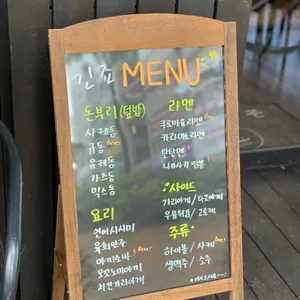 긴죠 MENU
돈부리(덮밥)
사케동
규동 Best!
유케동
가츠동
믹스동
요리
연어사시미
육회한주
야끼소바
오꼬노미야끼
치킨가라아게
라멘
쿠로마유라멘 Best!
카라미소라멘
탄탄멘
나가사키짬뽕
사이드
가라아게 / 타코야끼
우유튀김 / 고로케
주류
하이볼 / 사케
생맥주 / 소주